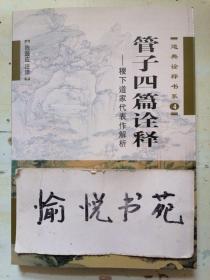 道典诠释书系
4
管子四篇诠释
——稷下道家代表作解析
陈鼓应 注译
愉悦书苑